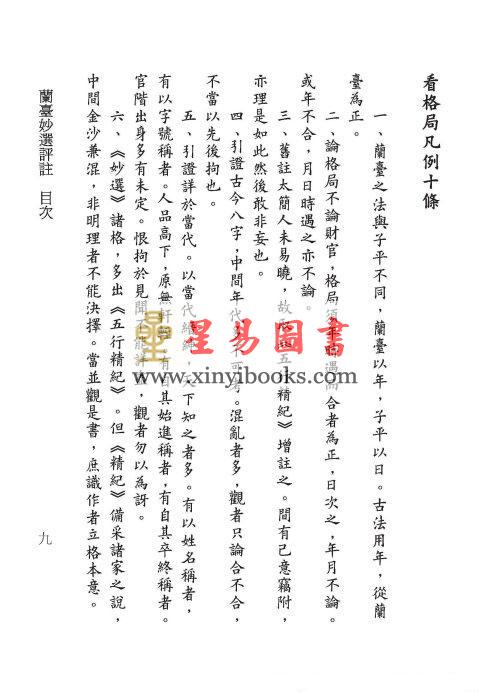 看格局凡例十條
一、蘭臺之法與子平不同,蘭臺以年,子平以日。古法用年,從蘭
臺為正。
二、論格局不論財官,格局合者為正,日次之,年月不論。
或年不合,月日時遇之亦不論。
三、舊註太簡人未易曉,故五精紀》增註之。間有己意竊附,
亦理是如此然後敢非妄也。
四、引證古今八字,中間年代不可考。混亂者多,觀者只論合不合,
不當以先後拘也。
五、引證詳於當代。以當代縉紳,天下知之者多。有以姓名稱者,
有以字號稱者。人品高下,原無軒有自其始進稱者,有自其卒終稱者。
官階出身多有未定。恨拘於見聞,觀者勿以為訝。
六、《妙選》諸格,多出《五行精紀》。但《精紀》備采諸家之說,
中間金沙兼混,非明理者不能決擇。當並觀是書,庶識作者立格本意。
蘭臺妙選評註 目次
九
星易圖書
www.xinyibooks.com